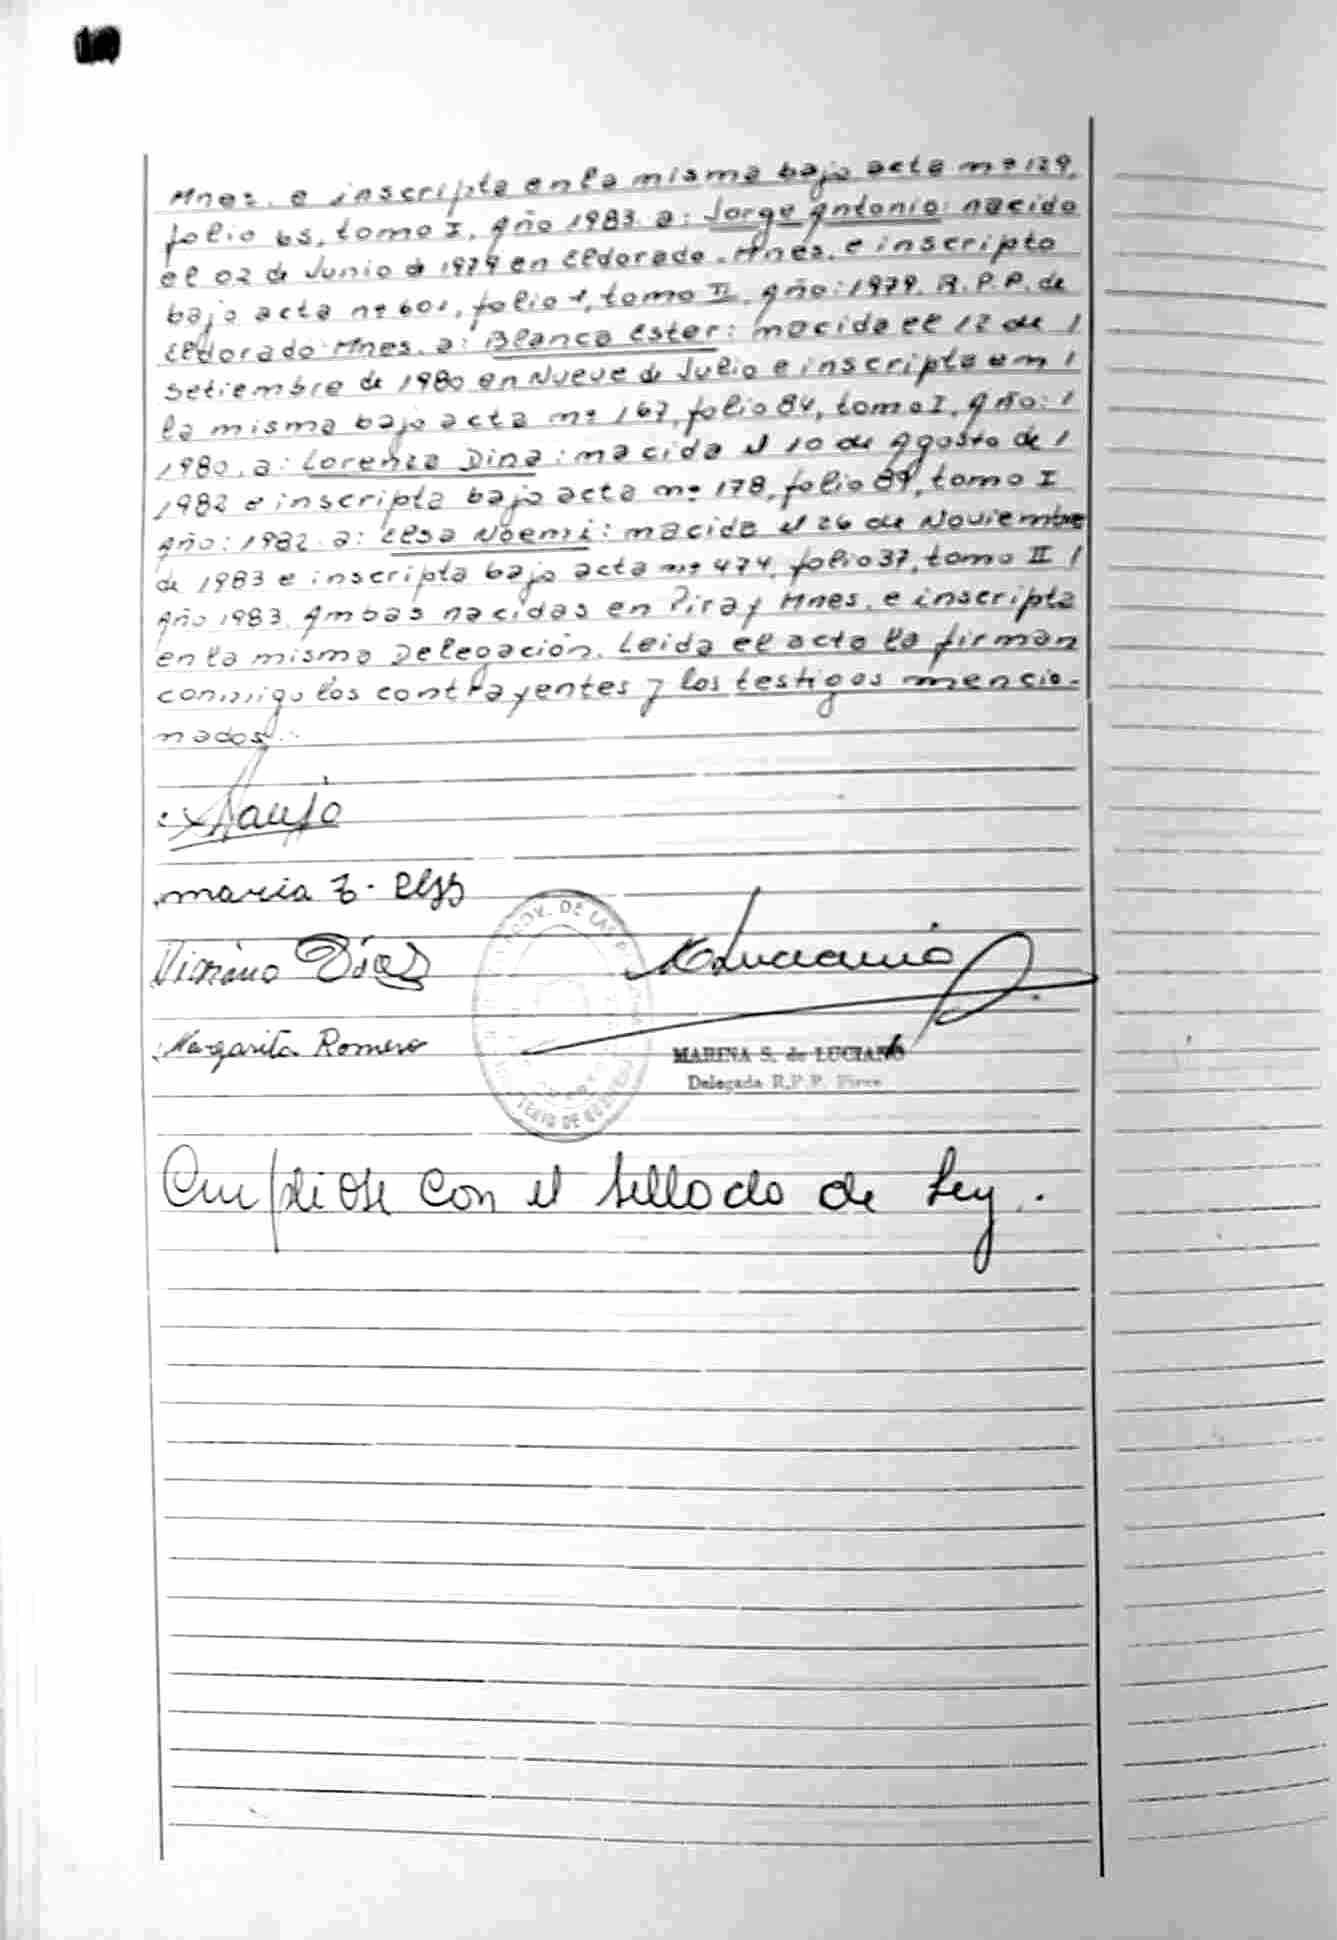 Mnes. e inscripta en la misma bajo acta nº 129,
folio 65, tomo I, Año 1983. a: Jorge Antonio: nacido
el 02 de Junio de 1979 en Eldorado-Mnes. e inscripto
bajo acta nº 601, folio 1, tomo II, Año: 1979. R.P.P. de
Eldorado Mnes. a: Blanca Ester: nacida el 12 de /
setiembre de 1980 en Nueve de Julio e inscripta en /
la misma bajo acta nº 167, folio 84, tomo I, Año: /
1980. a: Lorenza Dina: nacida el 10 de Agosto de /
1982 e inscripta bajo acta nº 178, folio 89, tomo I
Año: 1982. a: Elsa Noemi: nacida el 26 de Noviembre
de 1983 e inscripta bajo acta nº 474, folio 37, tomo II /
Año 1983. Ambas nacidas en Piray Mnes. e inscripta
en la misma Delegación. Leida el acta la firman
conmigo los contrayentes y los testigos mencio-
nados.-
Araujo
maria
Diaz
Margarita Romero
PROV. DE
MARINA S. de LUCIANO
Delegada R.P.P. Piray
Cumpliose con el sellado de Ley.